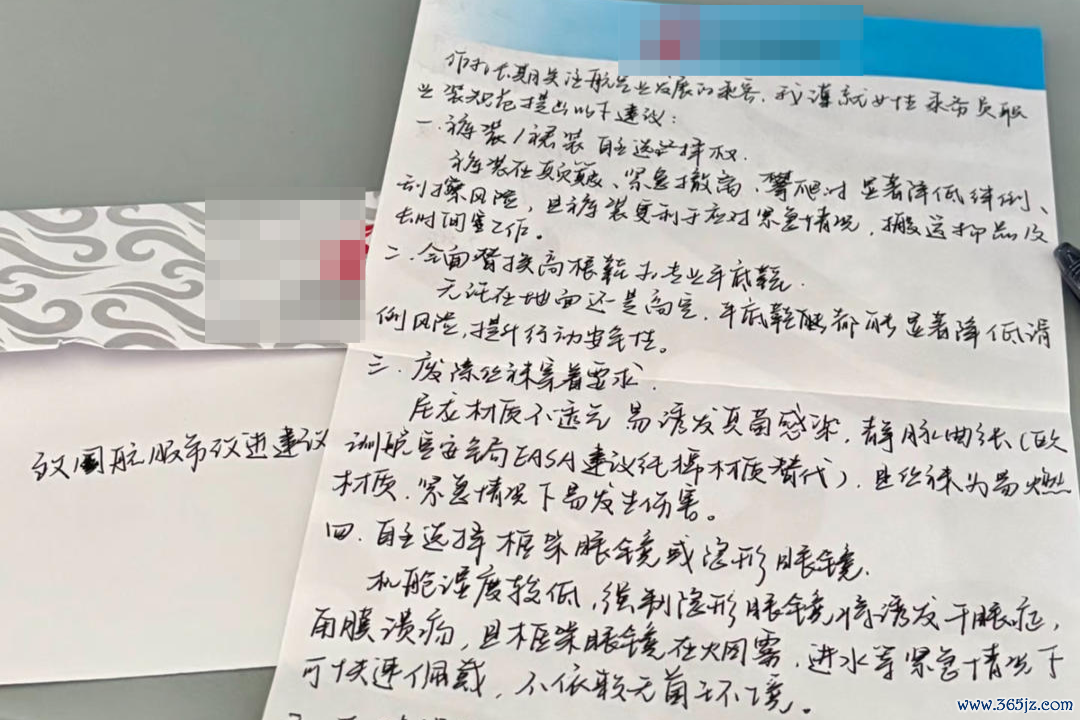 作为长期关注航空业发展的乘客，我谨就女性乘务员职
业装规范提出以下建议：
一.裤装/裙装自主选择权.
裤装在颠簸、紧急撤离、攀爬时显著降低绊倒、
刮擦风险，且裤装更利于应对紧急情况，搬运物品及
长时间工作。
二.全面替换高根鞋为专业平底鞋.
无论在地面还是高空，平底鞋都能显著降低滑
倒风险，提升行动安全性。
三.废除丝袜穿着要求.
尼龙材质不透气易诱发真菌感染，静脉曲张（欧
洲航空安全局EASA建议纯棉材质替代），且丝袜为易燃
材质.紧急情况下易发生伤害。
四.自主选择框架眼镜或隐形眼镜.
机舱湿度较低，强制隐形眼镜将诱发干眼症，
角膜溃疡，且框架眼镜在火烟雾，进水等紧急情况下
可快速佩戴，不依赖无菌环境。
致国航服务改进建议
www.365jz.com